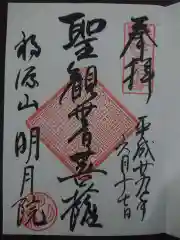 奉拝
平成廿九年
六月十日
聖觀世音菩薩
福源山 明月院